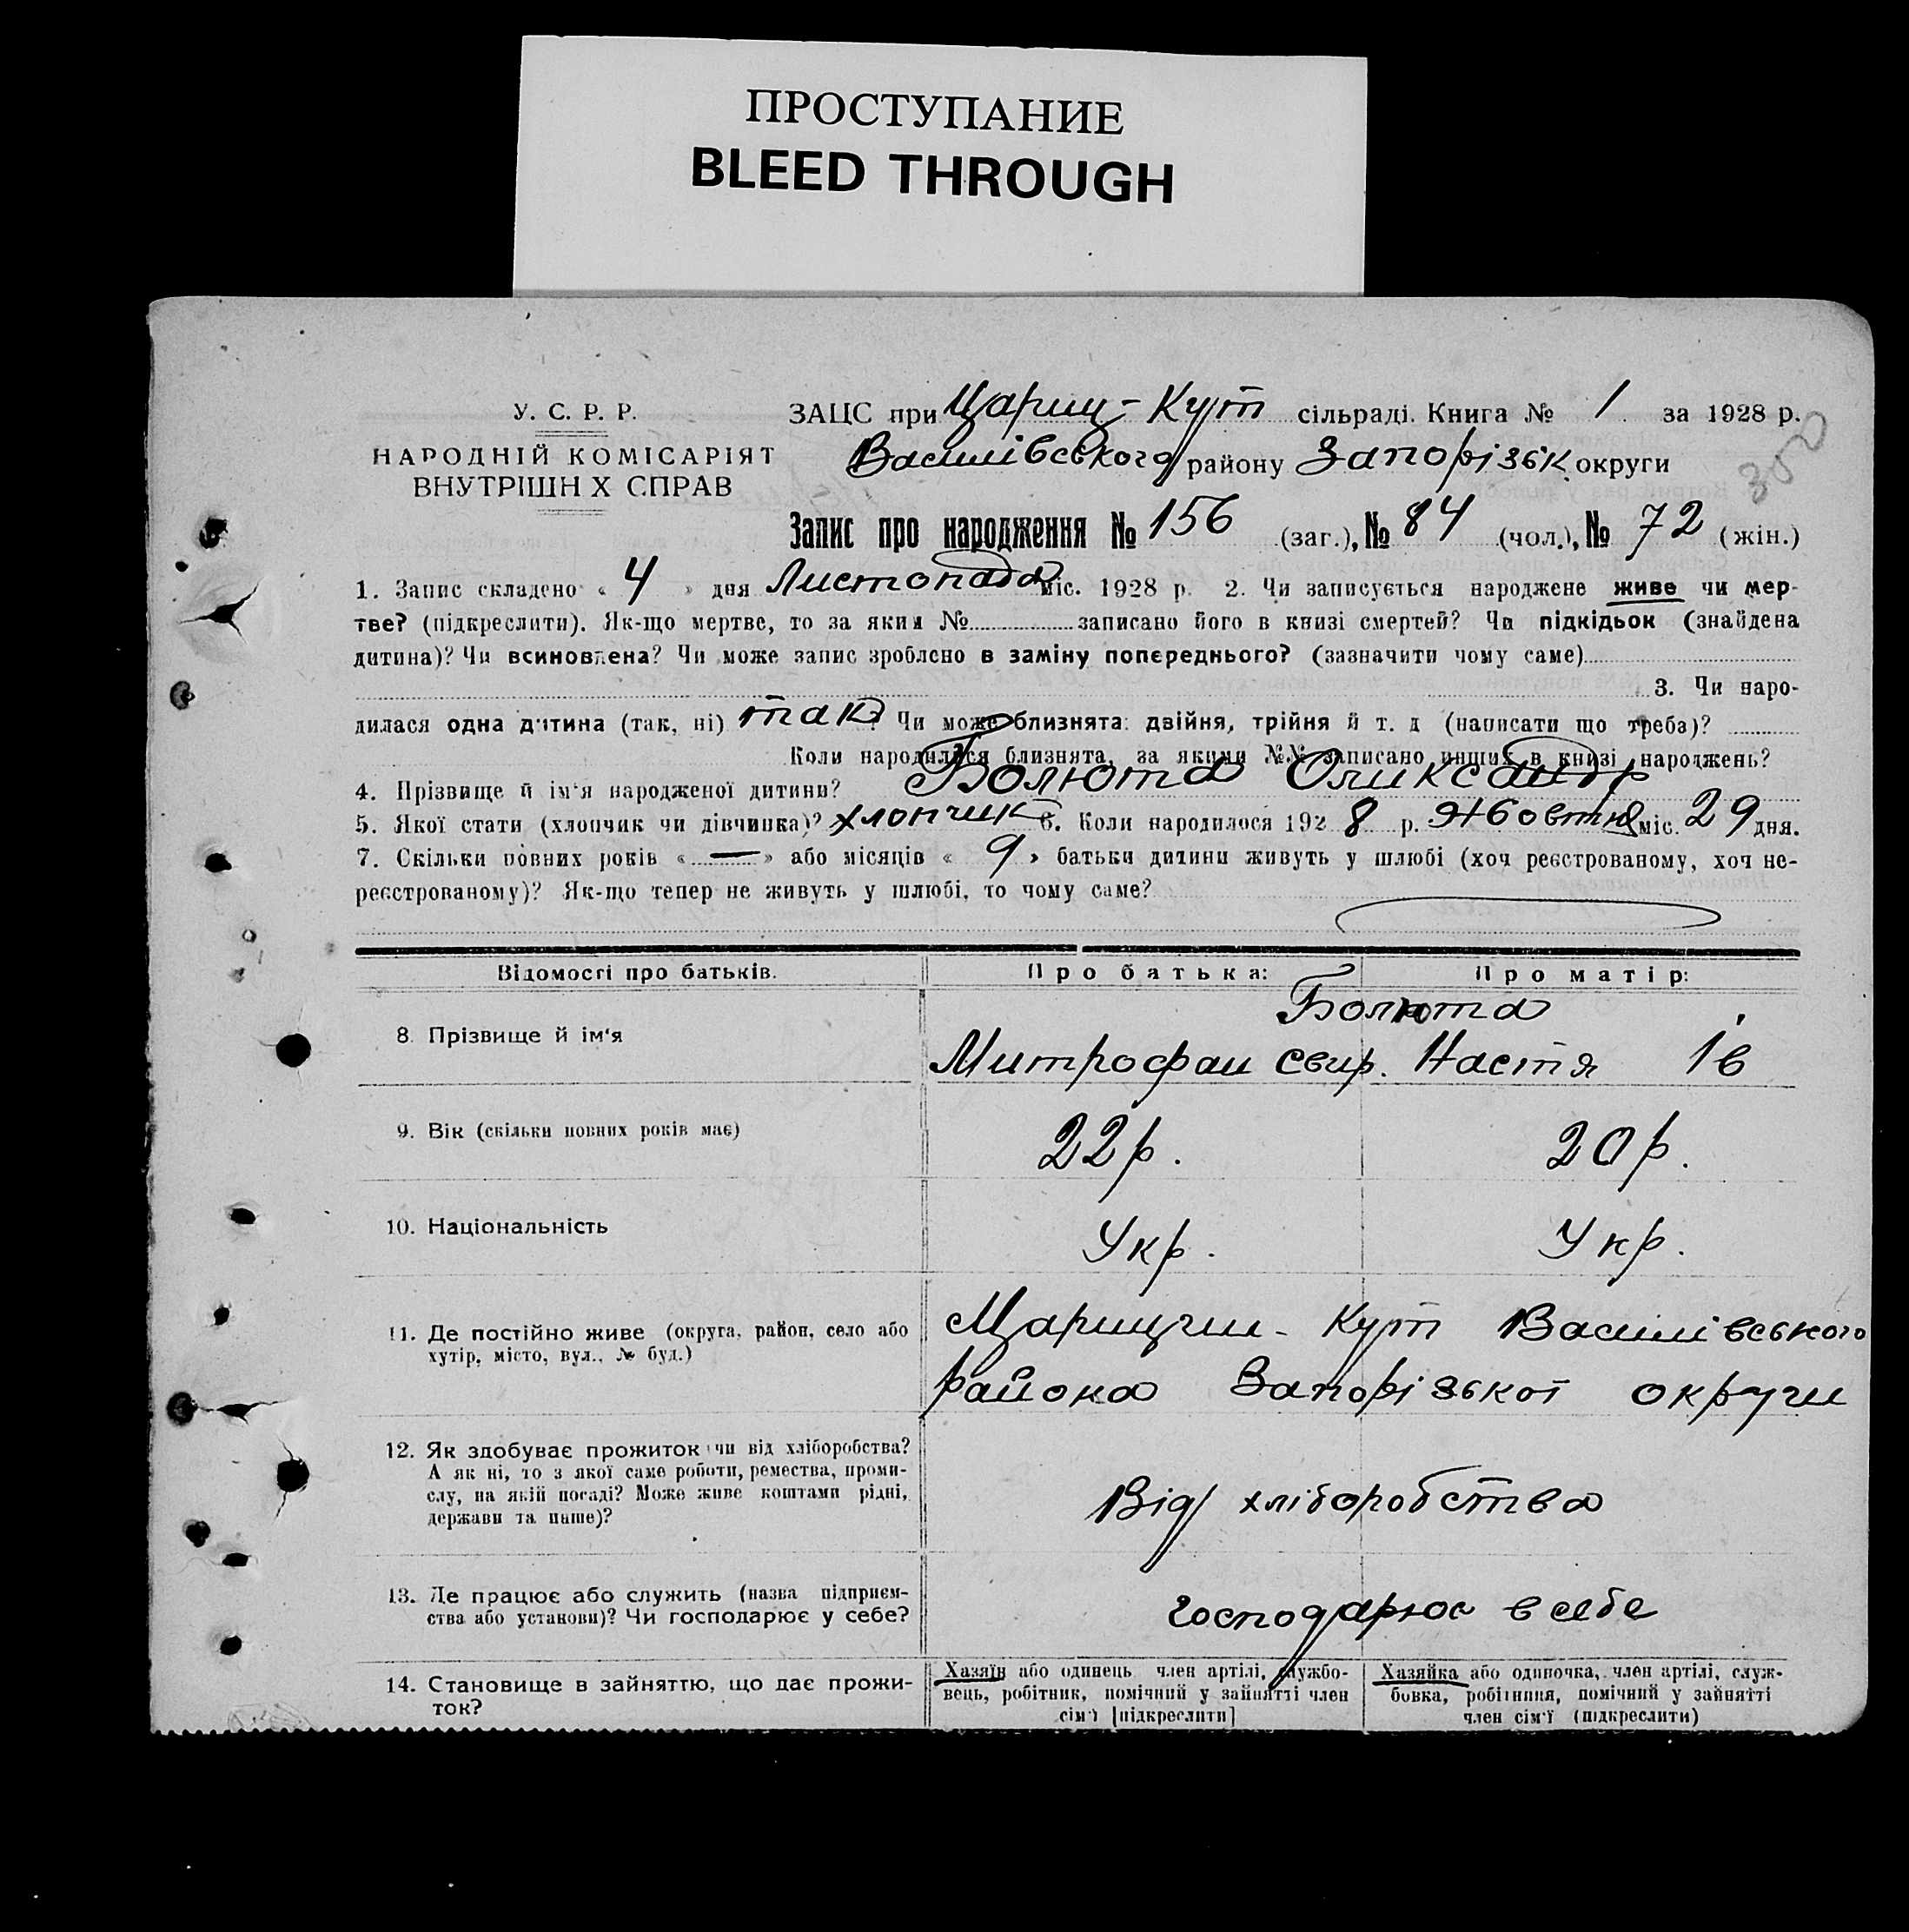 ПРОСТУПАНИЕ
BLEED THROUGH
У. С. Р. Р.
НАРОДНІЙ КОМІСАРІЯТ
ВНУТРІШН Х СПРАВ
ЗАЦС при Цариц-Кут сільраді. Книга № 1 за 1928 р.
Василівського району Запорізьк округи
300
Запис про народження № 156 (заг.), № 84 (чол.), № 72 (жін.)
1. Запис складено « 4 » дня Листопада міс. 1928 р. 2. Чи записується народжене живе чи мер-
тве? (підкреслити). Як-що мертве, то за яким № записано його в книзі смертей? Чи підкідьок (знайдена
дитина)? Чи всиновлена? Чи може запис зроблено в заміну попереднього? (зазначити чому саме)
3. Чи наро-
дилася одна дитина (так, ні) так? Чи може близнята: двійня, трійня й т. д (написати що треба)?
Коли народилися близнята, за якими №№ записано инших в книзі народжень?
4. Прізвище й ім'я народженої дитини? Болюта Оликсандр
5. Якої стати (хлопчик чи дівчинка)? хлопчик 6. Коли народилося 1928 р. Жовтня міс. 29 дня.
7. Скільки повних років « — » або місяців « 9 » батьки дитини живуть у шлюбі (хоч реєстрованому, хоч не-
реєстрованому)? Як-що тепер не живуть у шлюбі, то чому саме?
Відомості про батьків. Про батька: Про матір:
Болюта
8. Прізвище й ім'я Митрофан Свир. Настя Ів
9. Вік (скільки повних років має) 22 р. 20 р.
10. Національність Укр. Укр.
11. Де постійно живе (округа, район, село або
хутір, місто, вул., № буд.)
Царицчин-Кут Василівського
района Запорізької округи
12. Як здобуває прожиток чи від хліборобства?
А як ні, то з якої саме роботи, ремества, проми-
слу, на якій посаді? Може живе коштами рідні,
держави та инше)?
Від хліборобства
13. Де працює або служить (назва підприєм-
ства або установи)? Чи господарює у себе?
господарює в себе
14. Становище в зайняттю, що дає прожи-
ток?
Хазяїн або одинець член артілі, службо-
вець, робітник, помічний у зайнятті член
сім'ї [підкреслити]
Хазяйка або одиночка, член артілі, служ-
бовка, робітниця, помічний у зайнятті
член сім'ї (підкреслити)